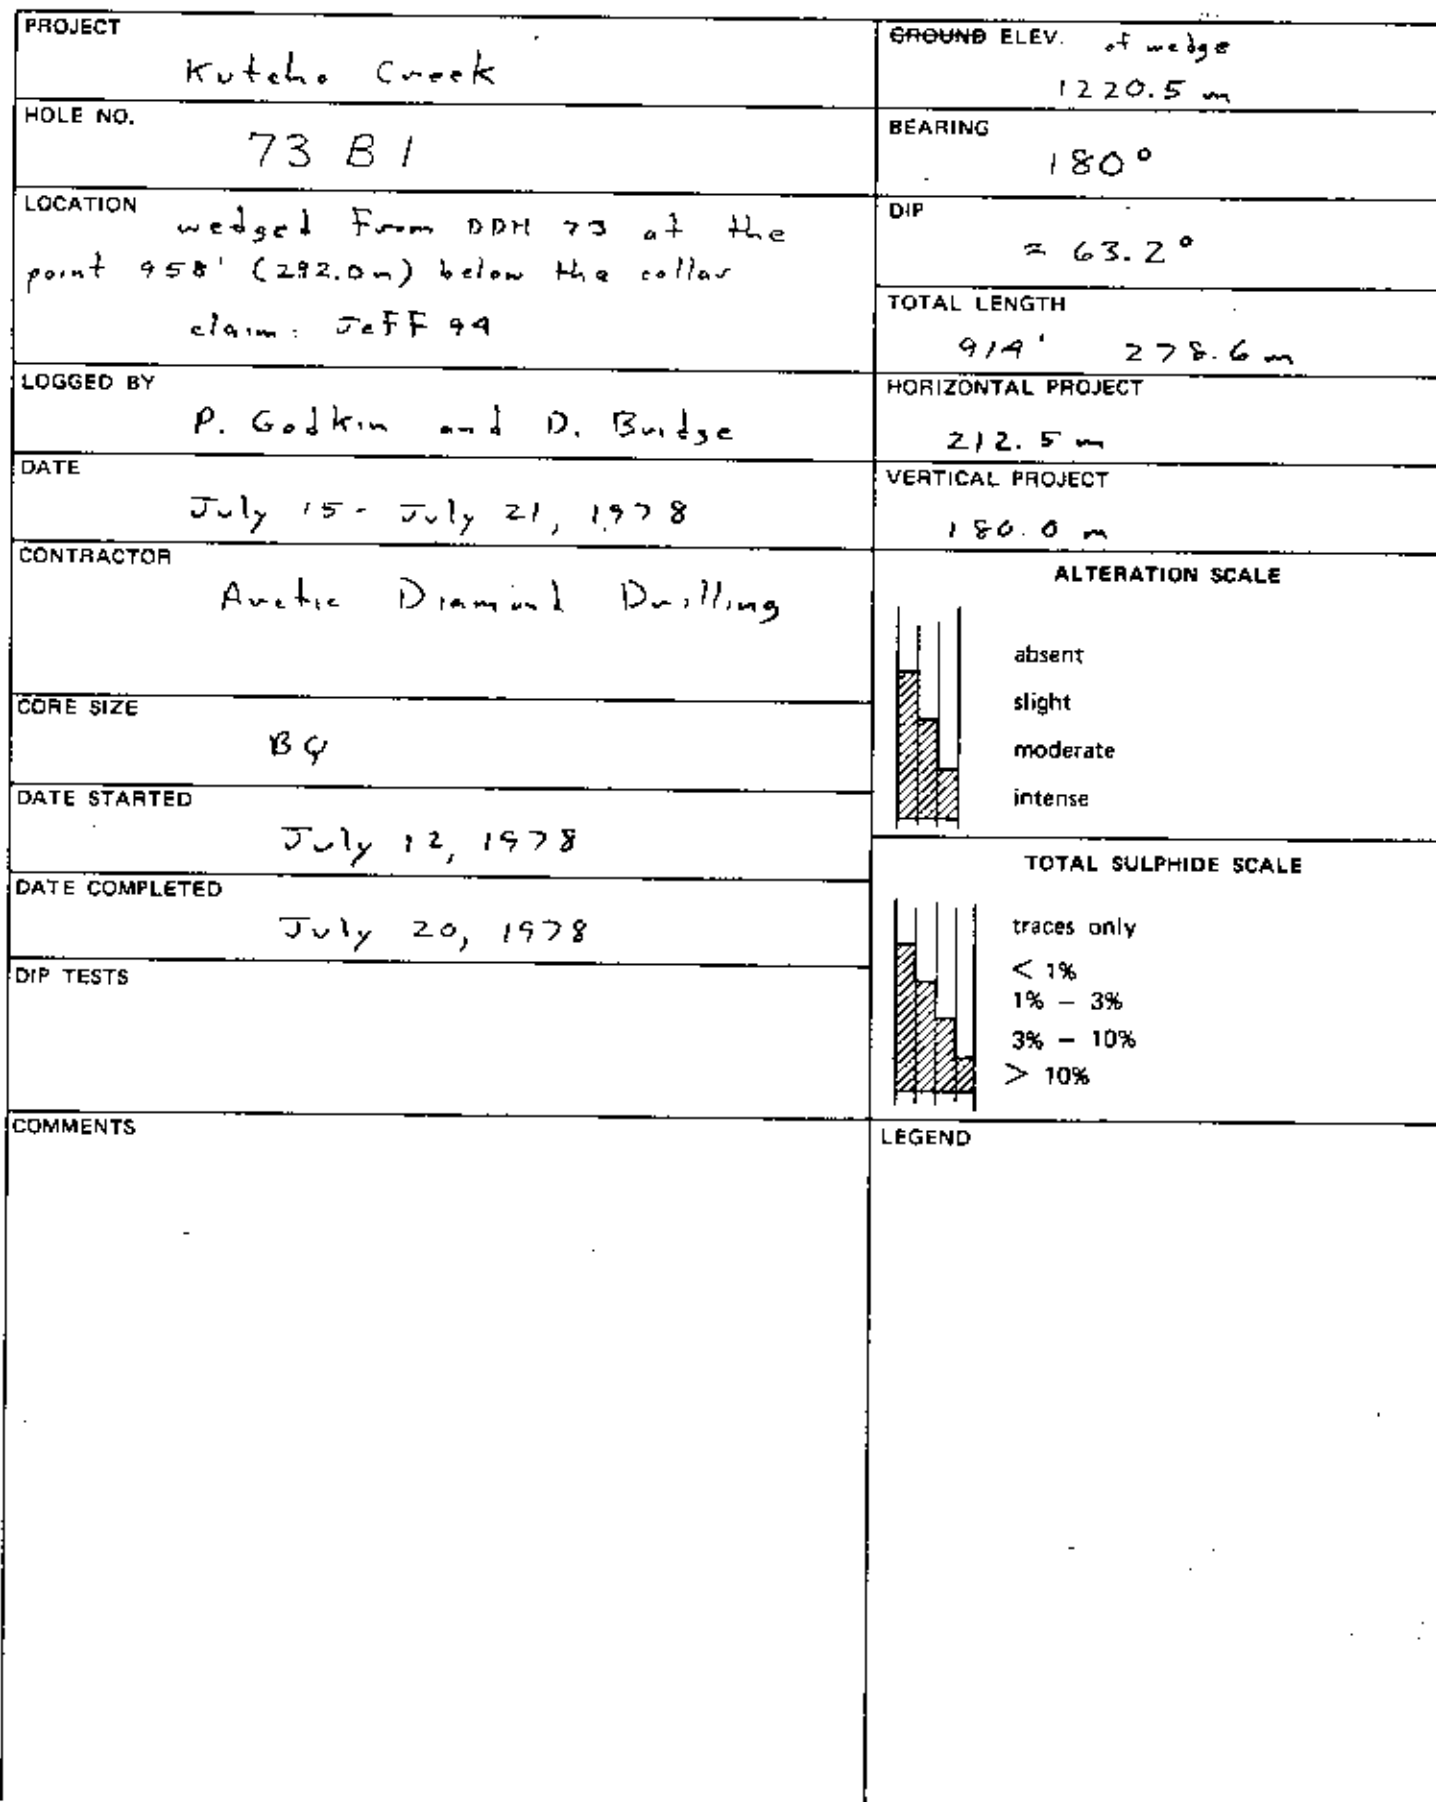 PROJECT
Kutcho Creek
HOLE NO.
73 B 1
LOCATION
wedged From DDH 73 at the
point 958' (292.0m) below the collar
claim: Jeff 94
LOGGED BY
P. Godkin and D. Bridge
DATE
July 15 - July 21, 1978
CONTRACTOR
Arctic Diamond Drilling
CORE SIZE
BQ
DATE STARTED
July 12, 1978
DATE COMPLETED
July 20, 1978
DIP TESTS
COMMENTS
GROUND ELEV. of wedge
1220.5 m
BEARING
180°
DIP
= 63.2°
TOTAL LENGTH
914' 278.6 m
HORIZONTAL PROJECT
212.5 m
VERTICAL PROJECT
180.0 m
ALTERATION SCALE
absent
slight
moderate
intense
TOTAL SULPHIDE SCALE
traces only
< 1%
1% – 3%
3% – 10%
> 10%
LEGEND